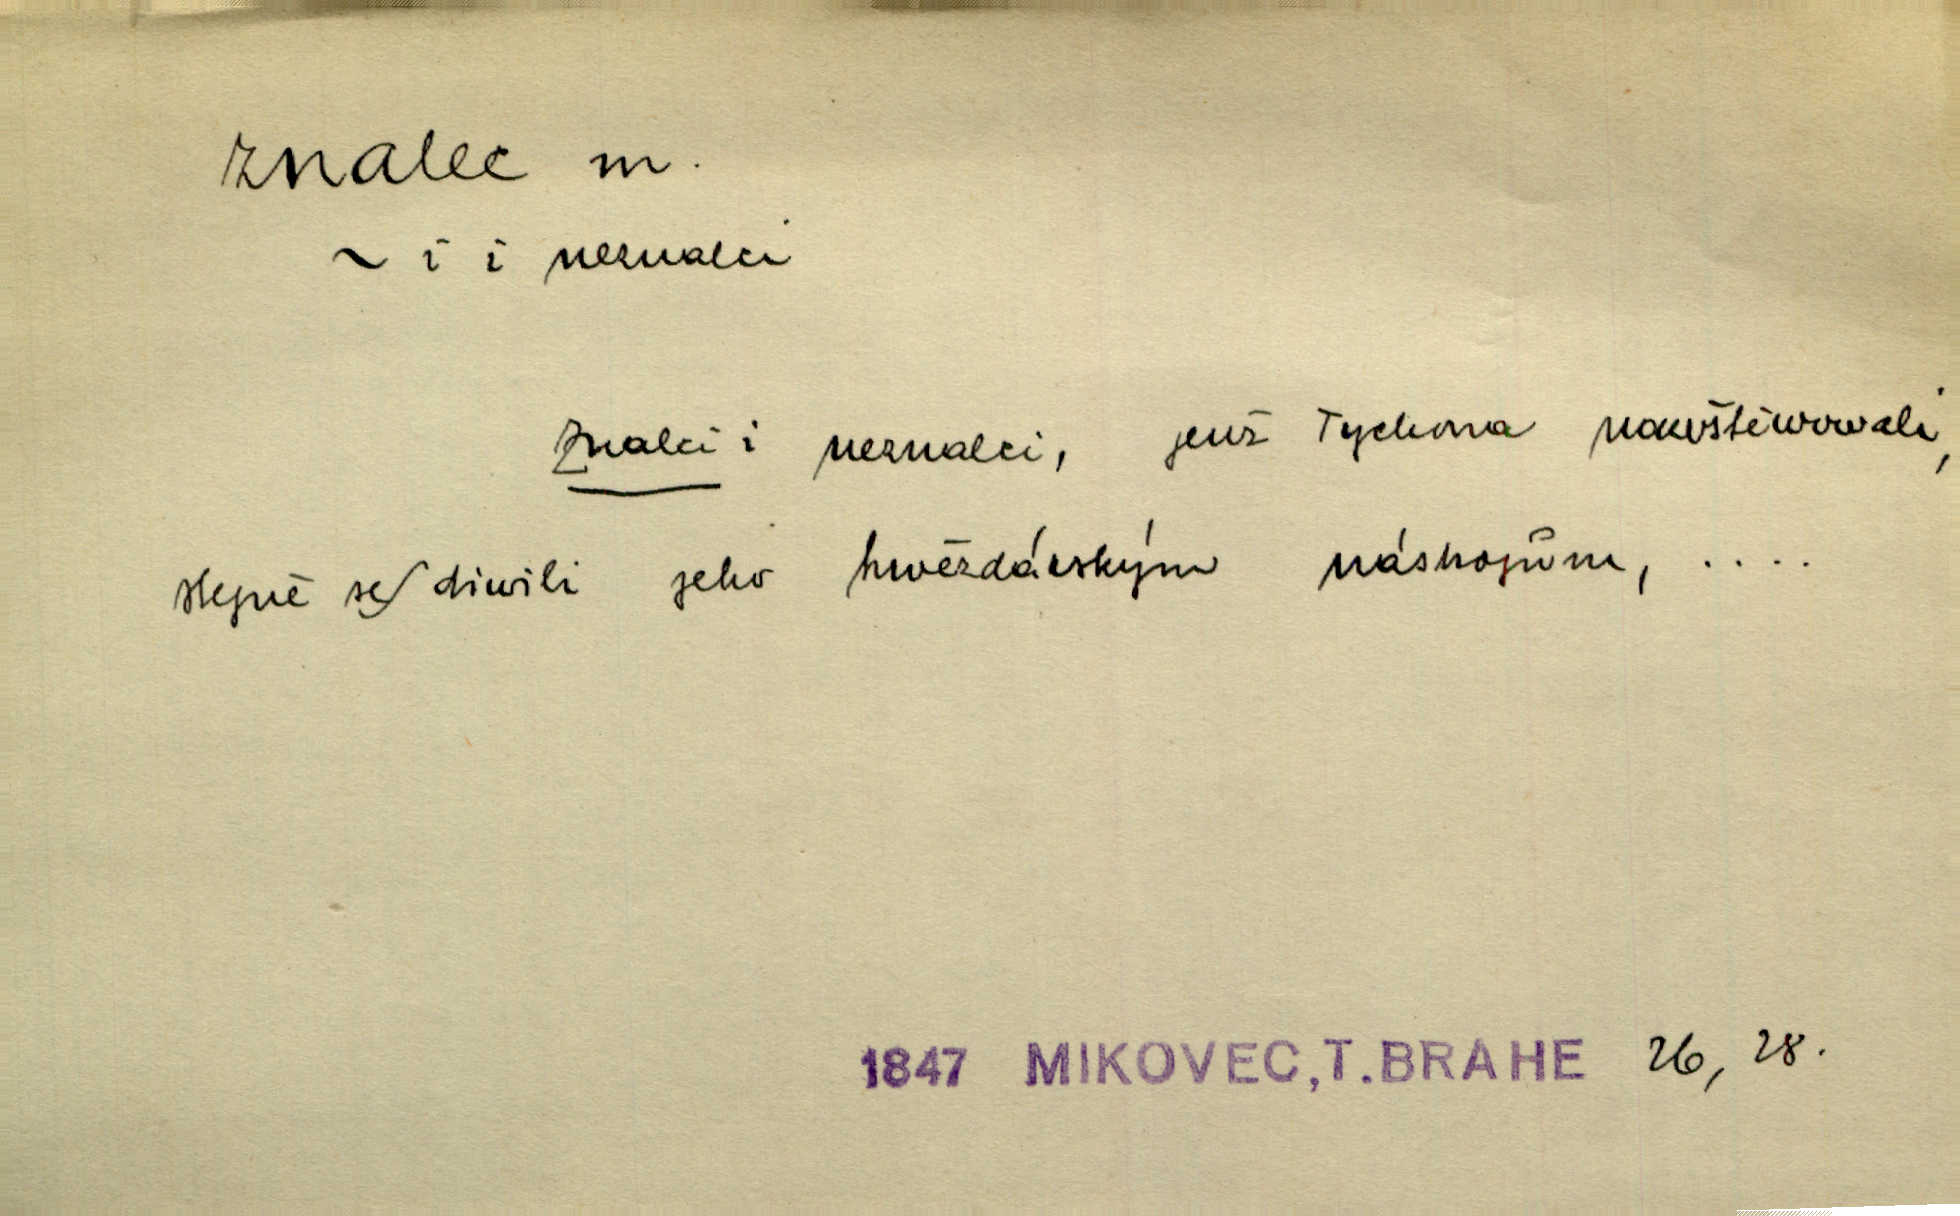 znalec m.
~ i i neznalci
Znalci i neznalci, jenž Tychona nawštěwowali,
stejně se diwili jeho hwězdářským nástrojům, ....
1847 MIKOVEC,T.BRAHE 26, 28.